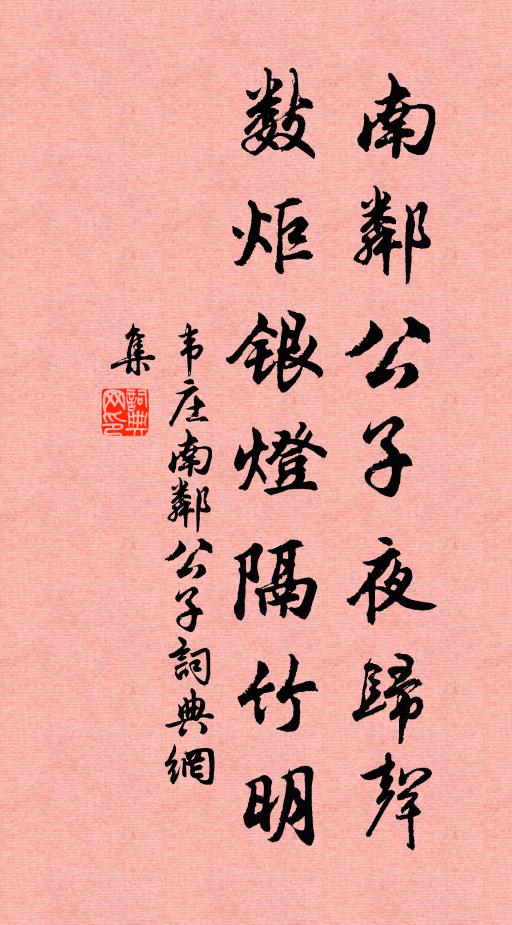 南鄰公子夜歸聲
數炬銀燈隔竹明
韦庄南鄰公子詞典網
集
詞典网印